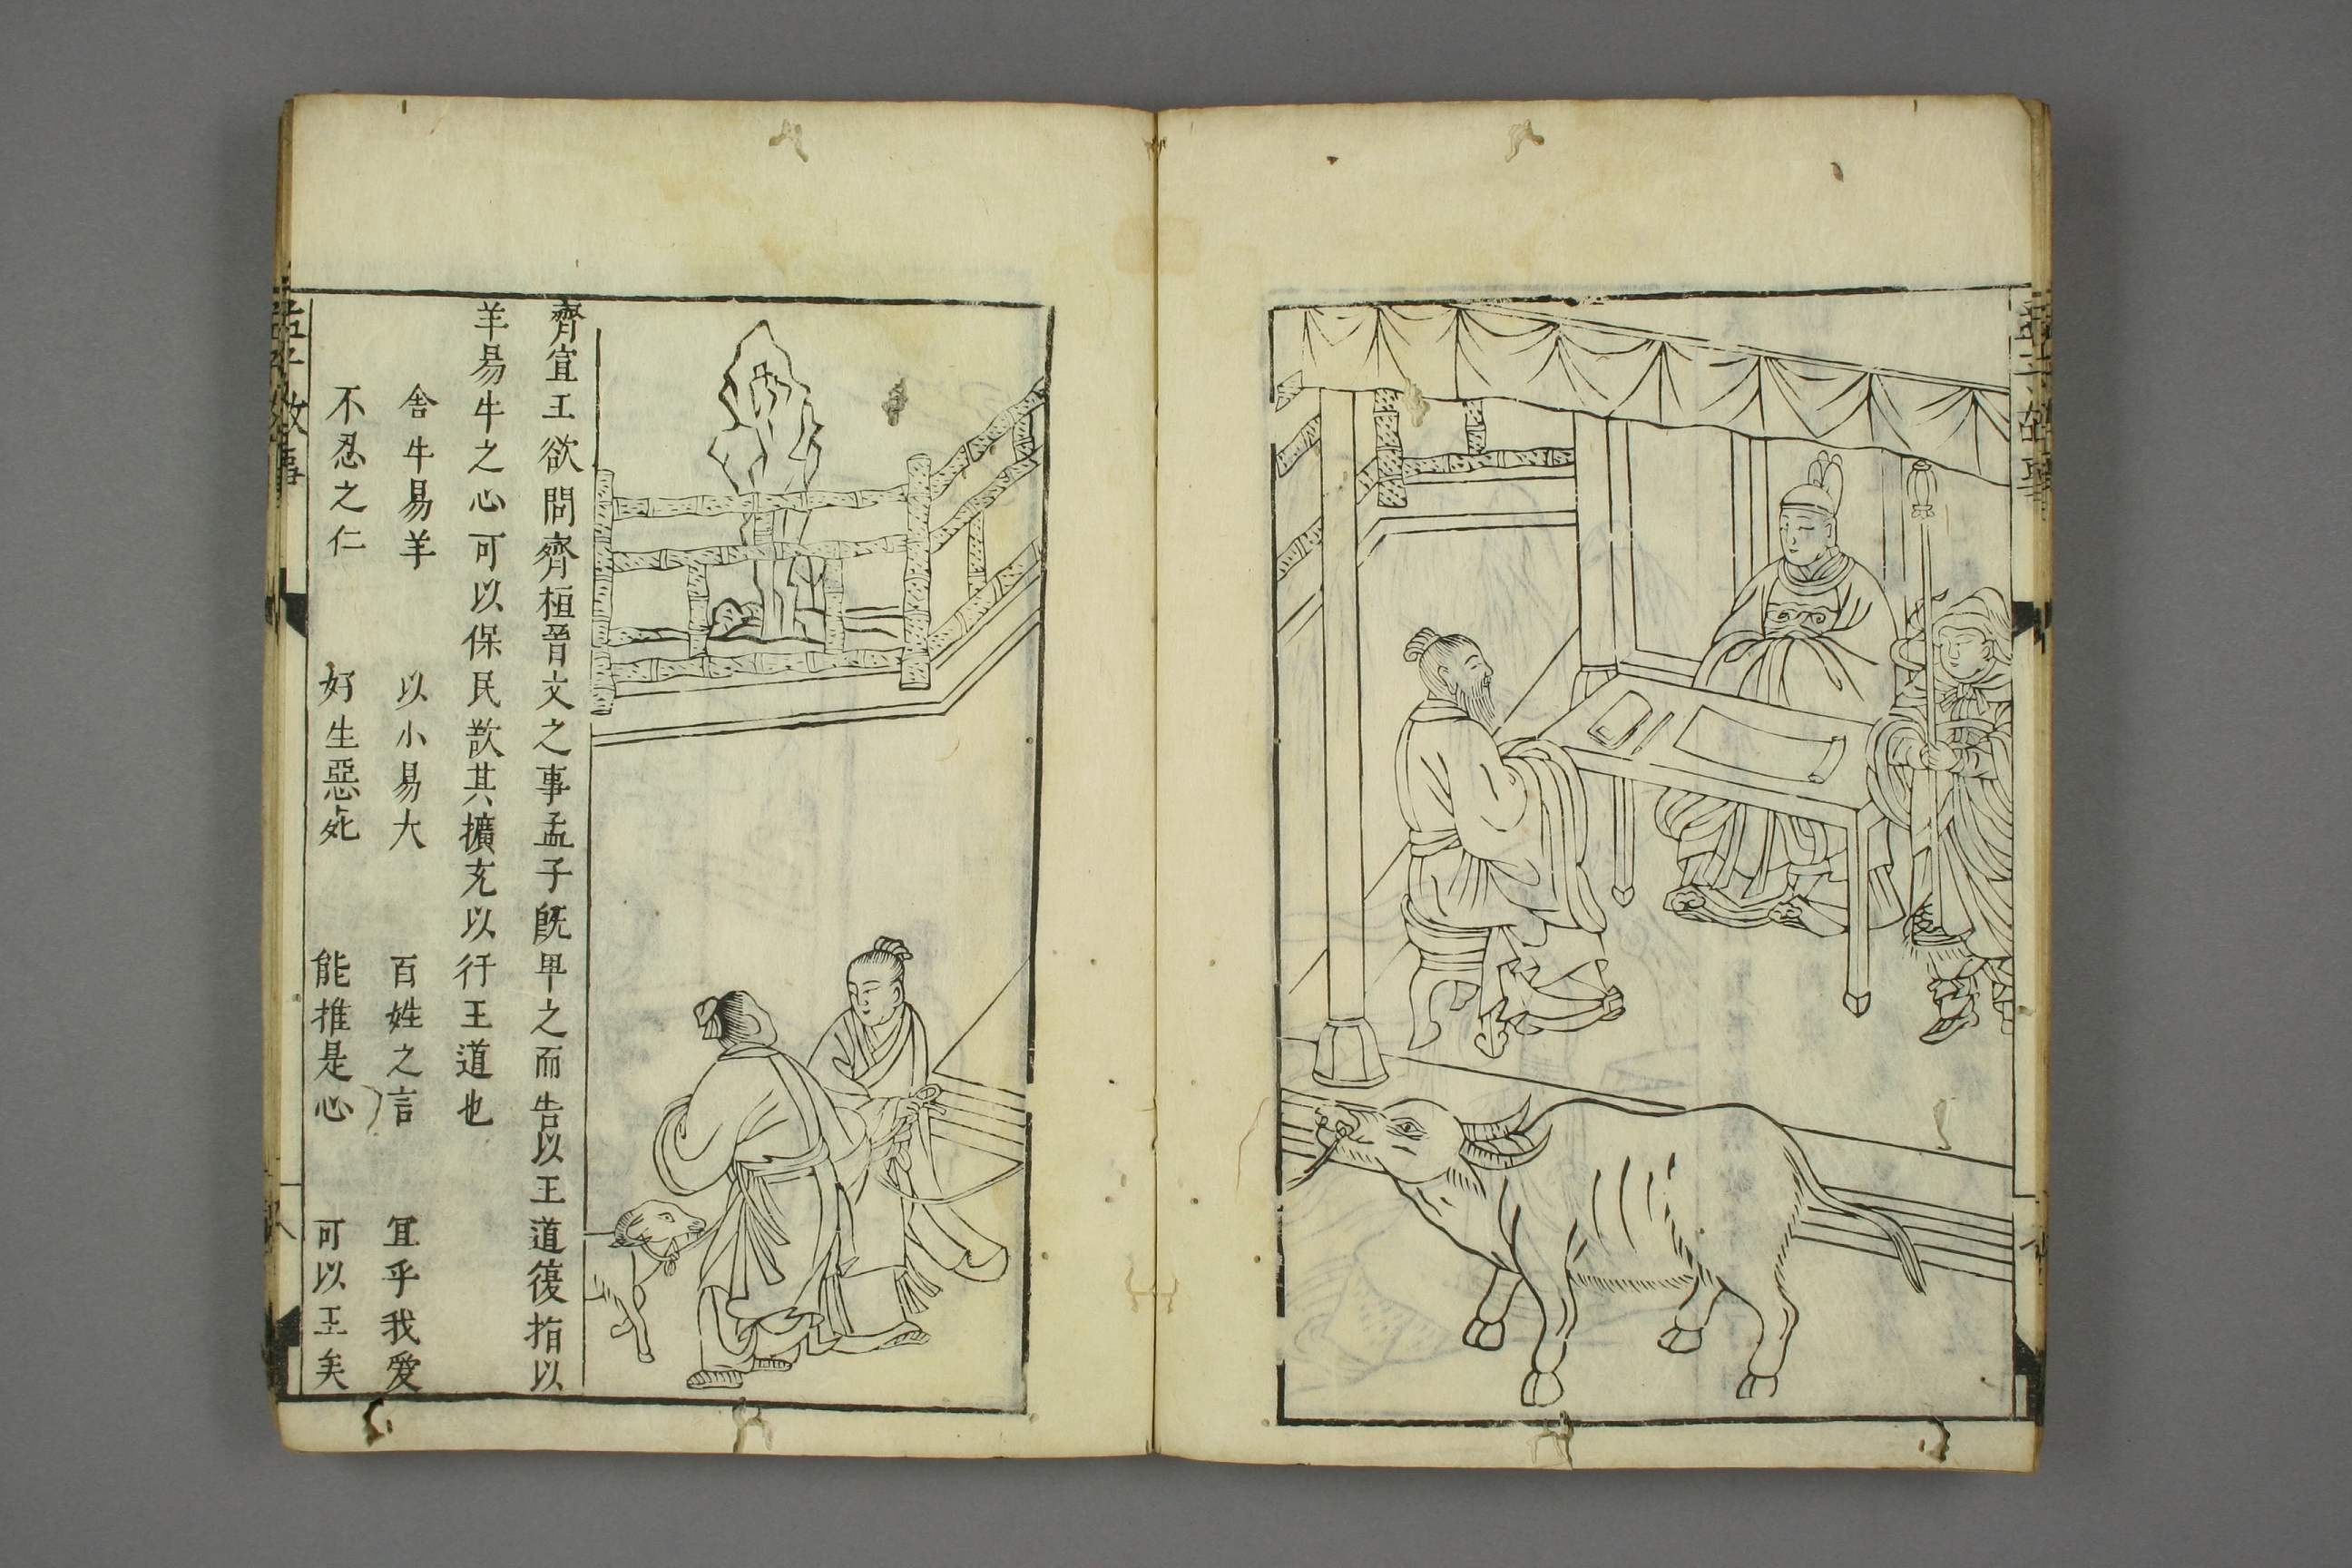 齊宣王欲問齊桓晉文之事孟子旣卑之而告以王道復指以
羊易牛之心可以保民歆其擴充以行王道也
舍牛易羊　以小易大　百姓之言　宜乎我愛
不忍之仁　好生惡死　能推是心　可以王矣
孟子故事